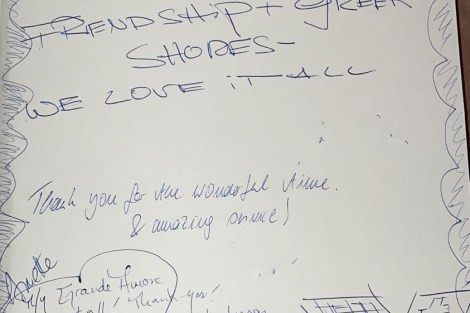 FRIENDSHIP + GREEK
SHORES-
WE LOVE IT ALL
Thank you for the wonderful time.
& amazing service!
M/y Grande Amore
all! Thank-you!